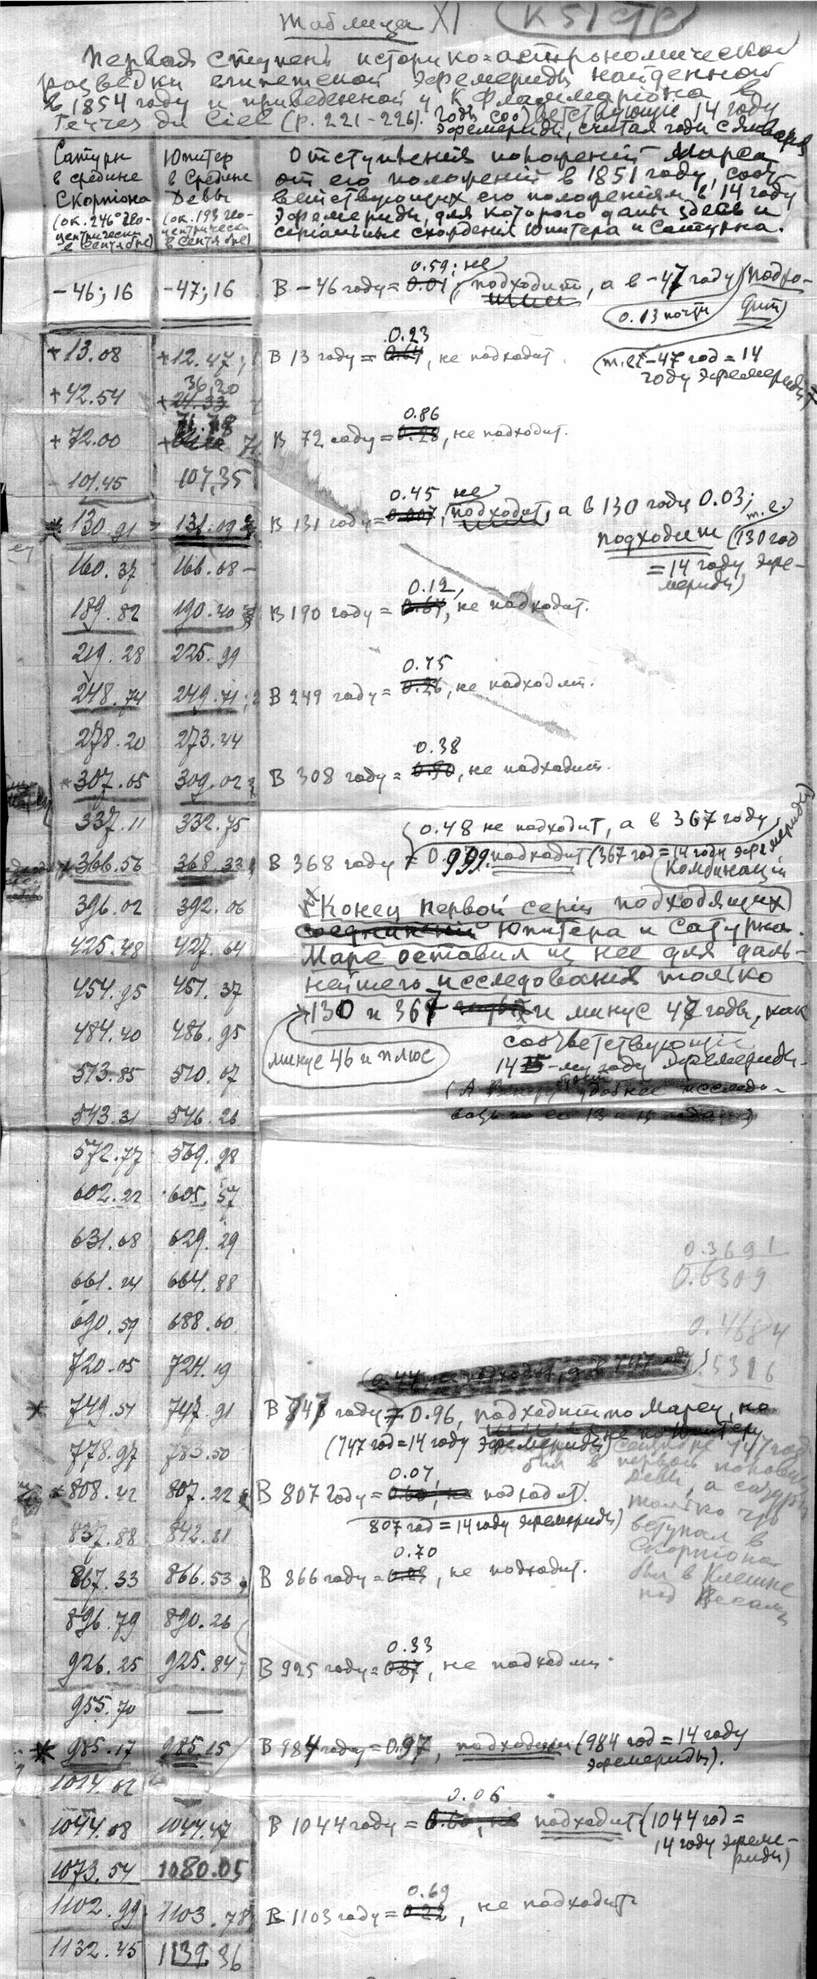 Таблица XI
Первая ступень историко-астрономической
разведки египетской эфемериды найденной
в 1854 году и приведенной у К. Фламмариона в
du Ciel (p. 221-226). Годы соответствующие 14 году
эфемериды, считая годы с января
Сатурн
в средине
Скорпиона
(ок. 246° гео-
центрически
в сентябре)
Юпитер
в средине
Девы
(ок. 193 гео-
центрически
в сентябре)
Отступления положений Марса
от его положений в 1851 году, соот-
ветствующих его положениям в 14 году
эфемериды, для которого даны здесь и
Юпитера и Сатурна.
-46; 16 -47; 16 В -46 году = 0.01 0.59; не подходит, а в -47 году (подхо-
0.13 почти дит)
+13.08 +12.47 В 13 году = 0.23, не подходит.
(т.е. -47 год = 14
году эфемериды)
+42.54 36.20
+72.00 71.78 В 72 году = 0.86, не подходит.
101.45 107.35
130.91 131.09 В 131 году = 0.45 не подходит, а в 130 году 0.03;
подходит (т.е. 130 год
= 14 году эфе-
мериды)
160.37 166.68
189.82 190.40 В 190 году = 0.12, не подходит.
219.28 225.99
248.74 249.71 В 249 году = 0.75, не подходит.
278.20 273.44
307.65 309.02 В 308 году = 0.38, не подходит.
337.11 332.75 0.48 не подходит, а в 367 году
366.56 368.33 В 368 году = 0.999 подходит (367 год = 14 году эфемериды)
комбинаций
396.02 392.06 Конец первой серии подходящих
425.48 427.64 соединений Юпитера и Сатурна.
Марс оставил из нее для даль-
454.95 451.37 нейшего исследования только
484.40 486.95 130 и 367 и минус 47 годы, как
соответствующие
минус 46 и плюс
513.85 510.67 14-му году эфемериды.
543.31 546.26
572.77 569.98
602.22 605.57
631.68 629.29 0.3691
661.14 664.88 0.6309
690.59 688.60 0.4684
720.05 724.19 5316
749.51 747.91 В 747 году = 0.96, подходит по Марсу, но
не по Юпитеру
(747 год = 14 году эфемериды)
778.97 783.50
был в первой половине
Девы, а Сатурн
только что
вступал в
Скорпиона
был в Клешне
под Весами
808.42 807.22 В 807 году = 0.07, подходит.
807 год = 14 году эфемериды)
837.88 842.81
867.33 866.53 В 866 году = 0.70, не подходит.
896.79 890.26
926.25 925.84 В 925 году = 0.33, не подходит.
955.70 —
985.17 985.15 В 984 году = 0.97, подходит (984 год = 14 году
эфемериды).
1014.62
1044.08 1044.47 В 1044 году = 0.06 подходит (1044 год =
14 году эфеме-
риды)
1073.54 1080.05
1102.99 1103.78 В 1103 году = 0.69, не подходит.
1132.45 1139.36